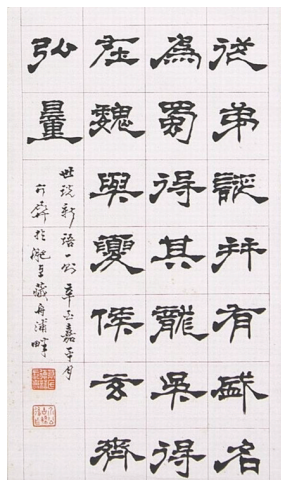 從弟誕并有盛名
為蜀得其龍吳得
在魏與夏侯玄齊
弘量
世說新語一則 辛丑嘉平月
於淝上藏舟浦畔